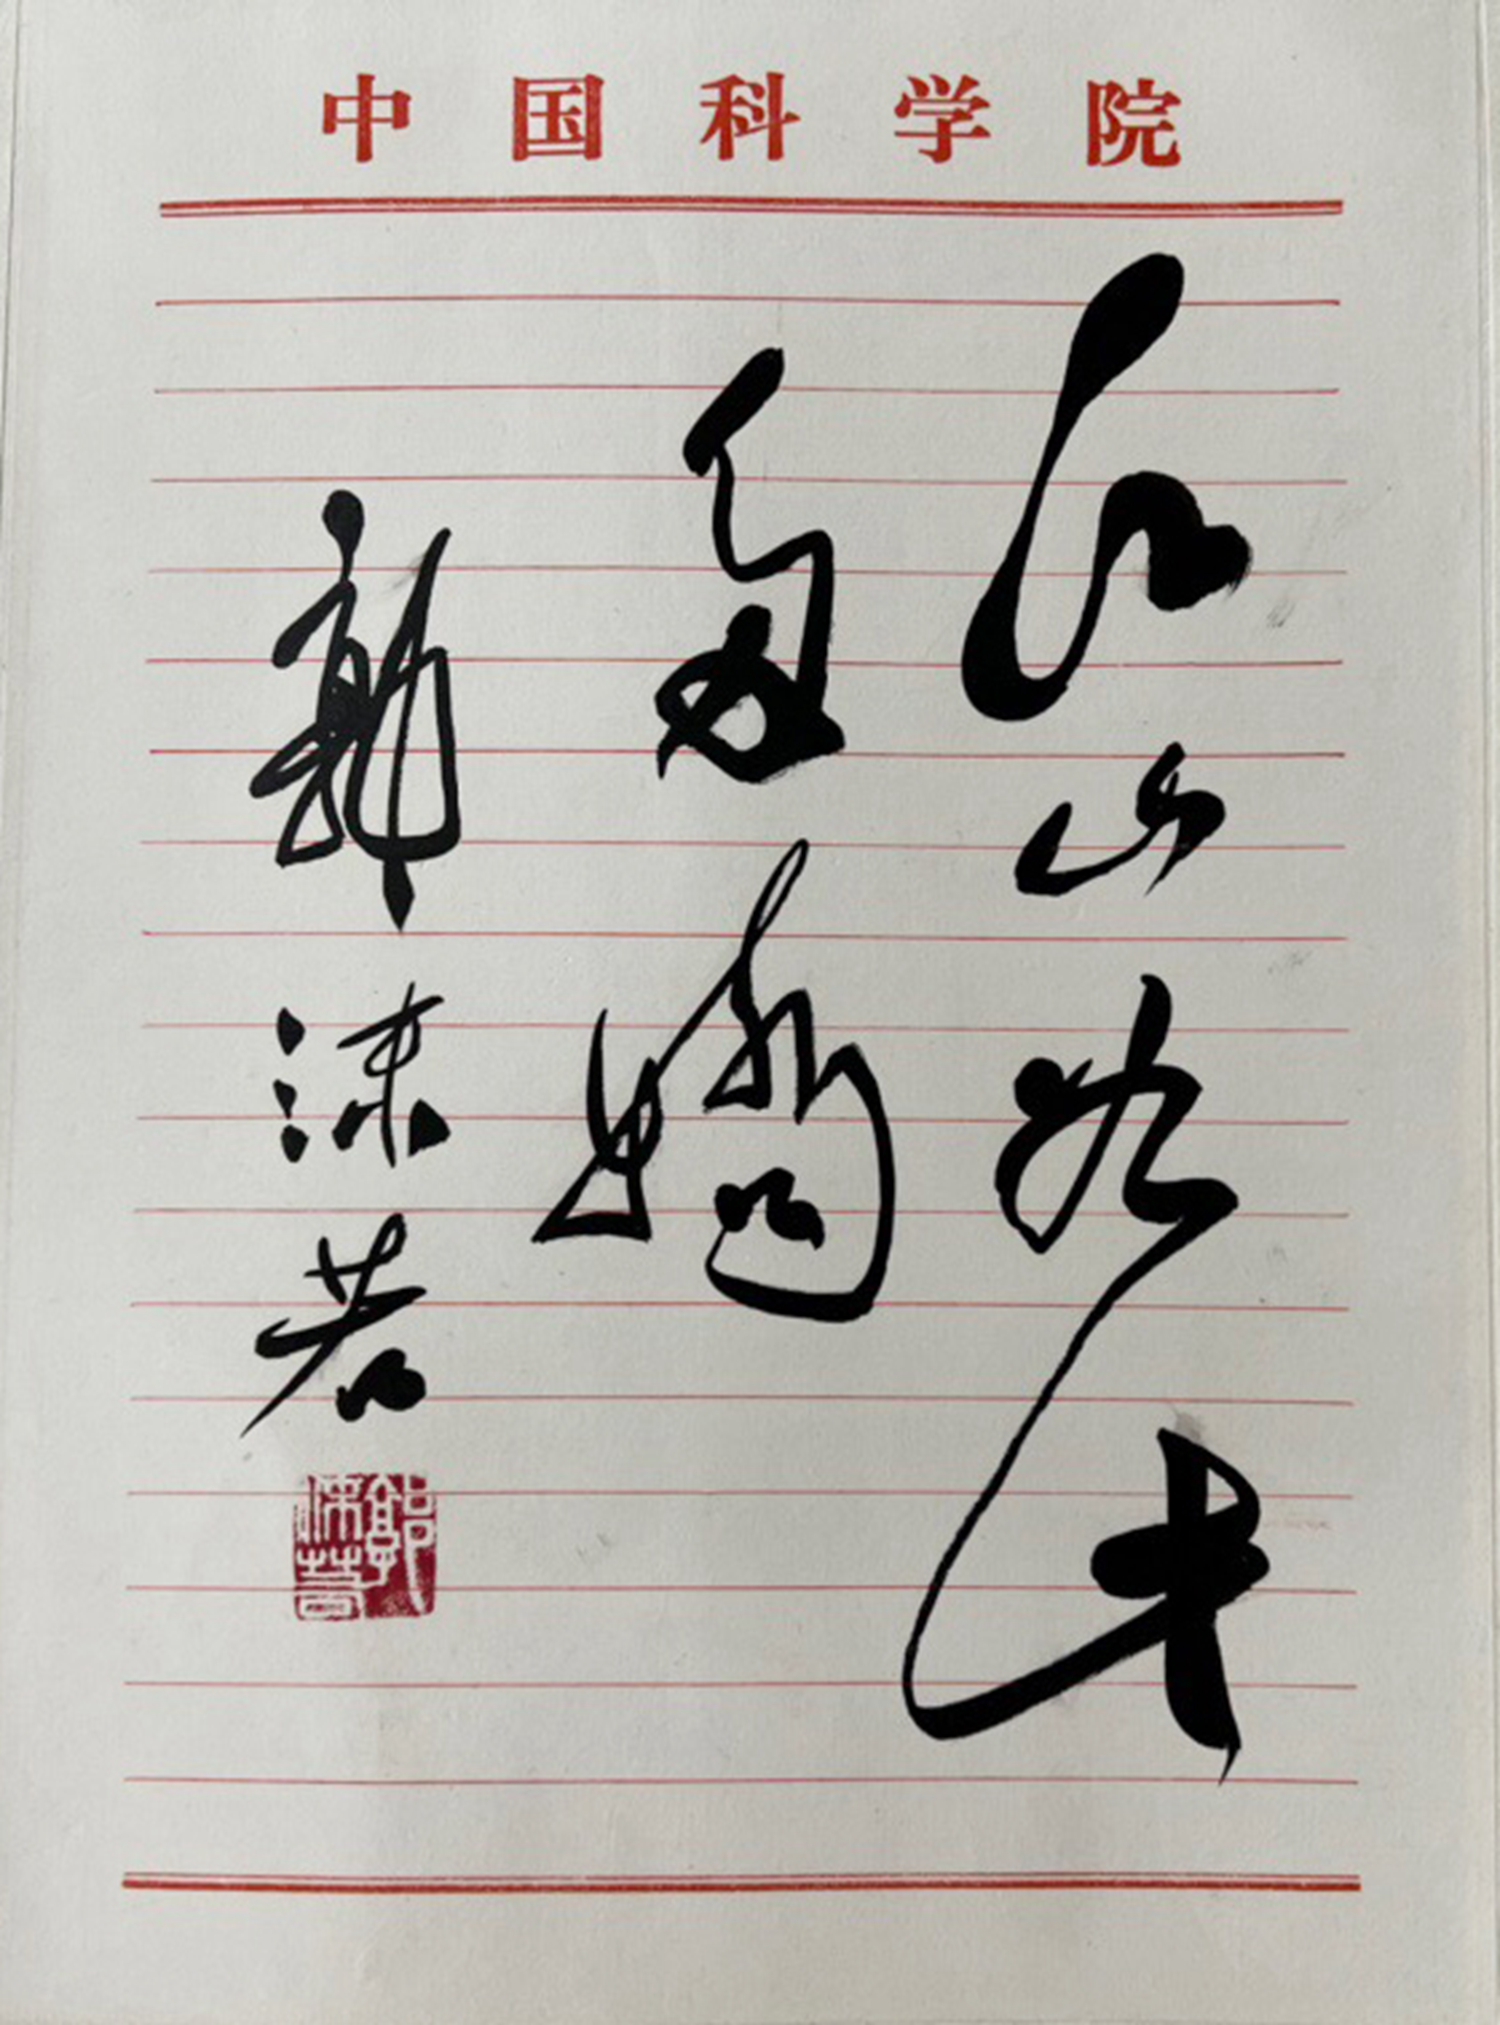 中国科学院
江山如此
多娇
郭沫若
郭沫若